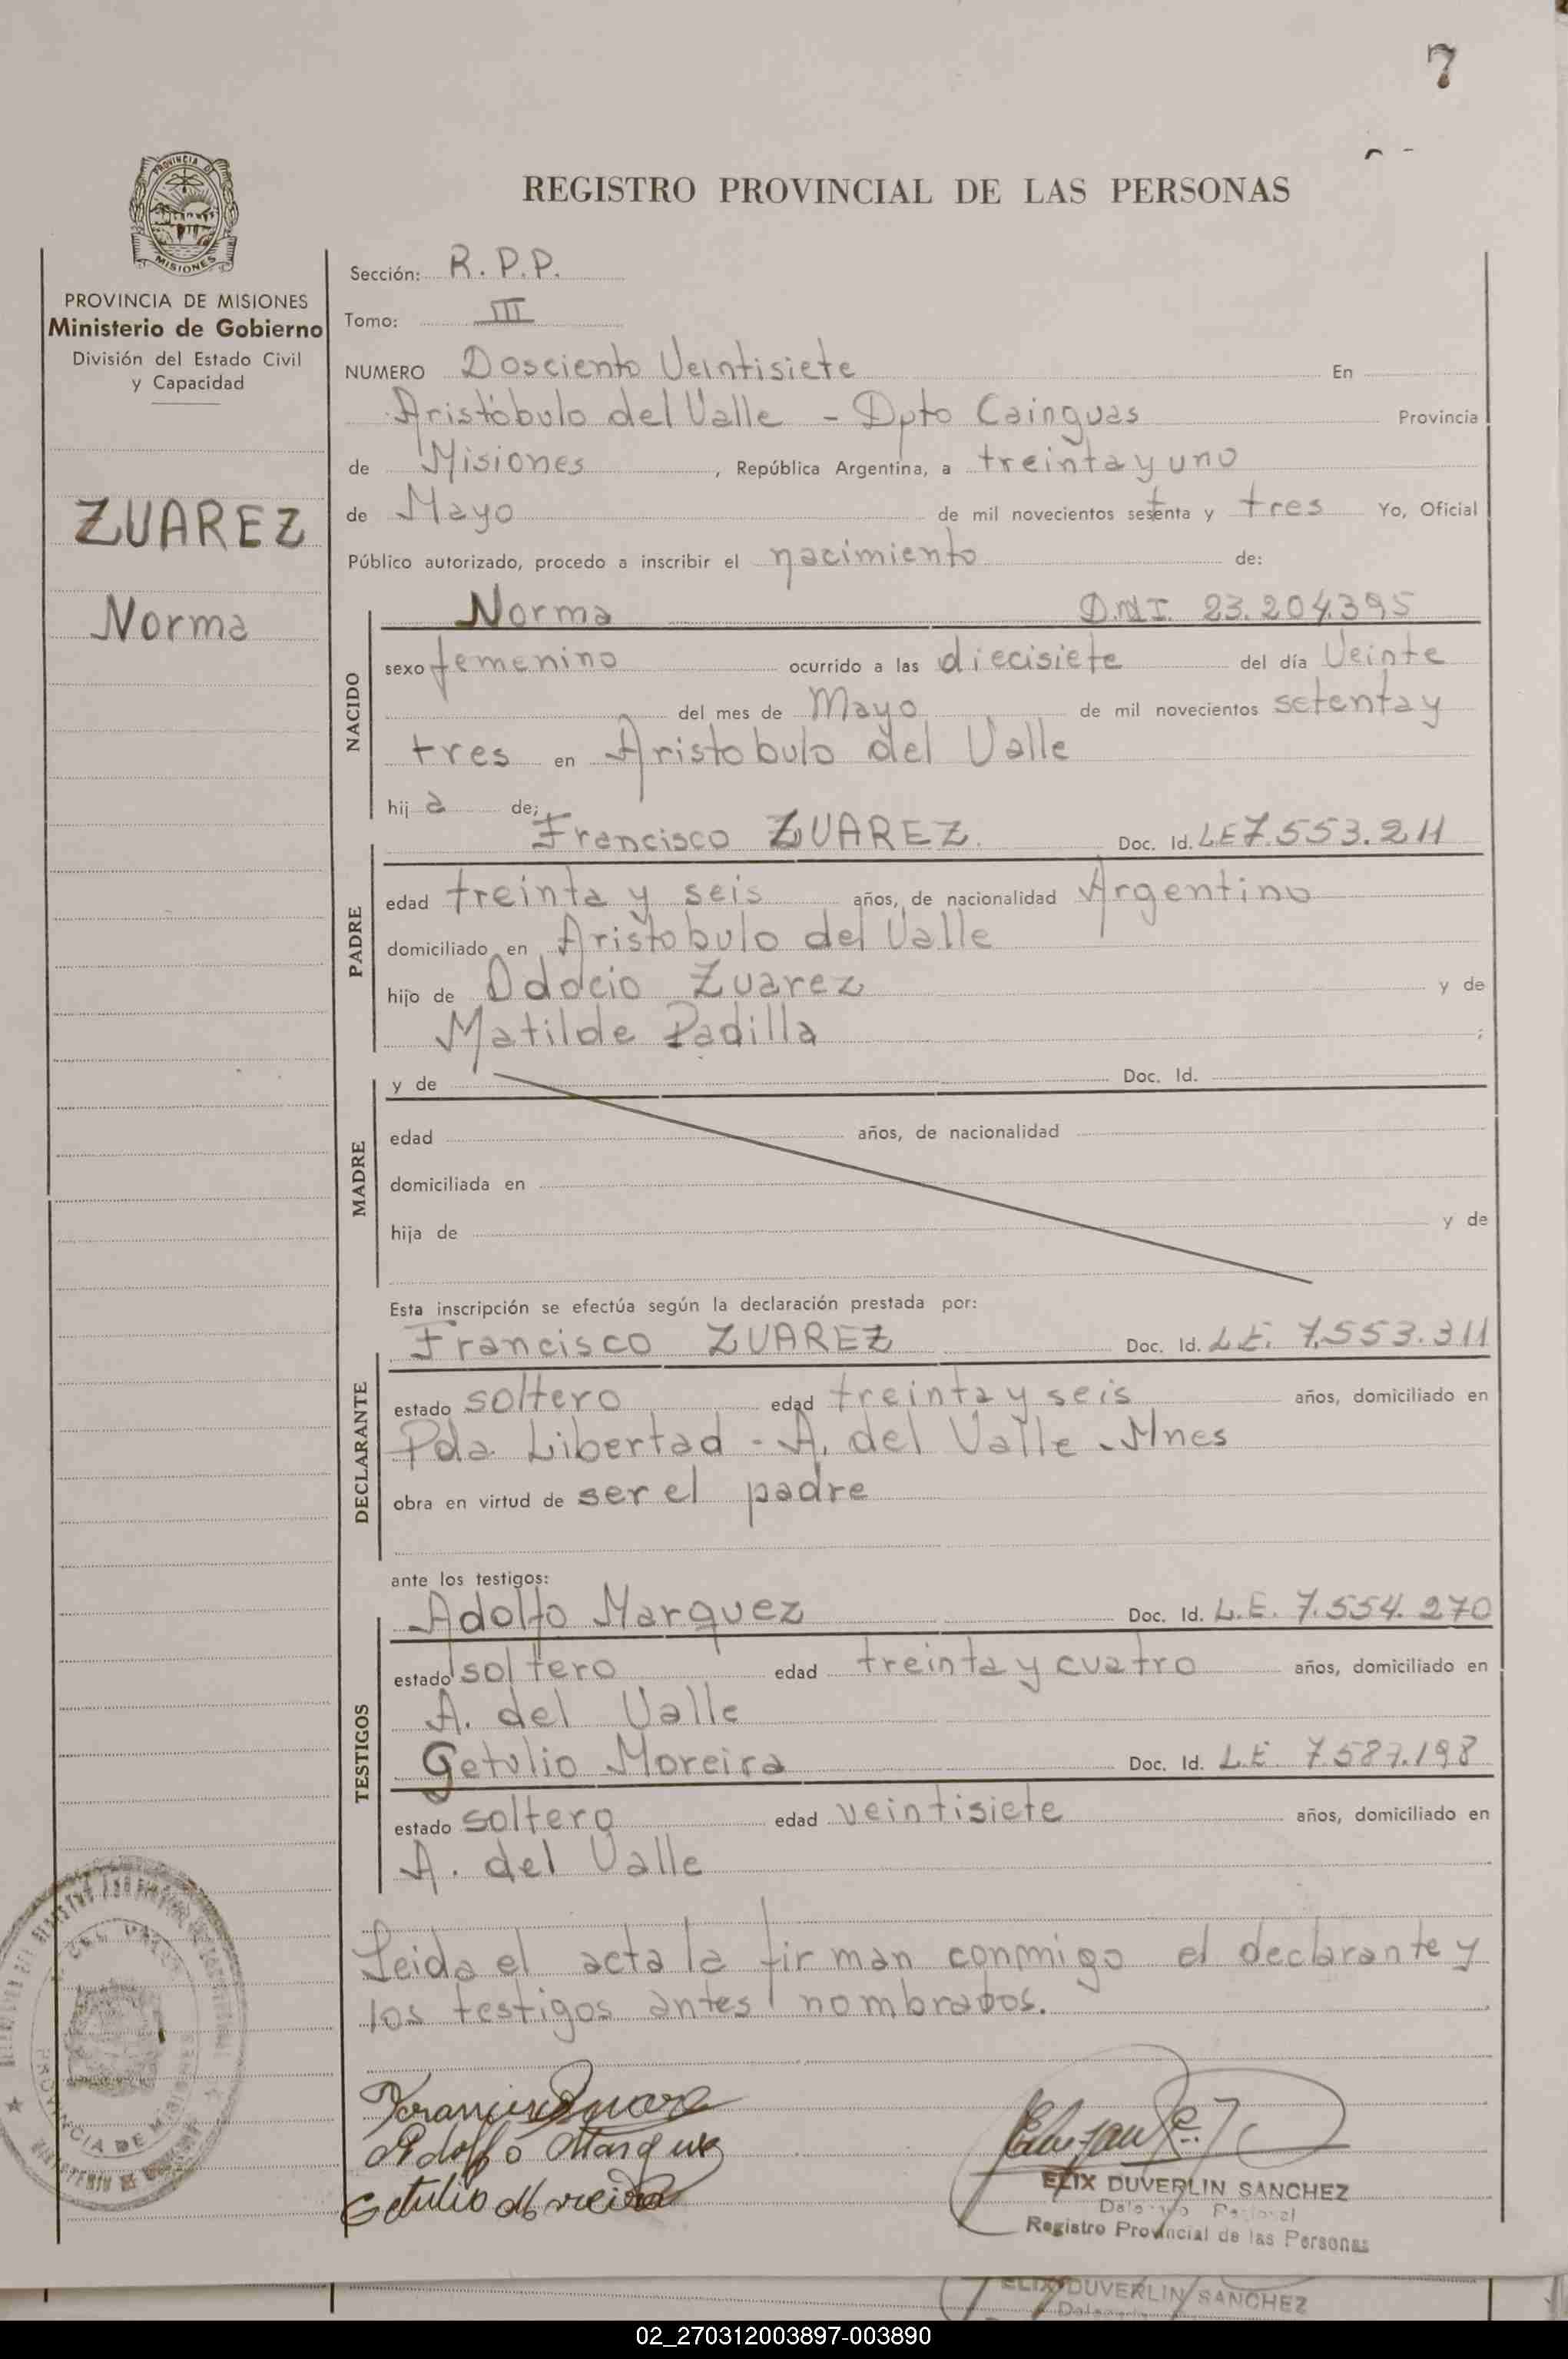 7
REGISTRO PROVINCIAL DE LAS PERSONAS
PROVINCIA DE MISIONES
Ministerio de Gobierno
División del Estado Civil
y Capacidad
ZUAREZ
Norma
Sección: R.P.P.
Tomo: III
NUMERO Dosciento Veintisiete En
Aristóbulo del Valle - Dpto Cainguas Provincia
de Misiones, República Argentina, a treinta y uno
de Mayo de mil novecientos setenta y tres Yo, Oficial
Público autorizado, procedo a inscribir el nacimiento de:
NACIDO
Norma D.N.I. 23.204.395
sexo femenino ocurrido a las diecisiete del día Veinte
del mes de Mayo de mil novecientos setenta y
tres en Aristobulo del Valle
hija de;
PADRE
Francisco ZUAREZ. Doc. Id. LE 7.553.211
edad treinta y seis años, de nacionalidad Argentino
domiciliado en Aristobulo del Valle
hijo de Odocio Zuarez y de
Matilde Padilla ;
MADRE
y de Doc. Id.
edad años, de nacionalidad
domiciliada en
hija de y de
Esta inscripción se efectúa según la declaración prestada por:
DECLARANTE
Francisco ZUAREZ Doc. Id. L.E. 7.553.311
estado soltero edad treinta y seis años, domiciliado en
Pda. Libertad - A. del Valle - Mnes
obra en virtud de ser el padre
ante los testigos:
TESTIGOS
Adolfo Marquez Doc. Id. L.E. 7.554.270
estado soltero edad treinta y cuatro años, domiciliado en
A. del Valle
Getulio Moreira Doc. Id. L.E. 7.587.198
estado soltero edad veintisiete años, domiciliado en
A. del Valle
Leida el acta la firman conmigo el declarante y
los testigos antes nombrados.
Adolfo Marquez
Getulio Moreira
ELIX DUVERLIN SANCHEZ
Registro Provincial de las Personas
ELIX DUVERLIN SANCHEZ
02_270312003897-003890